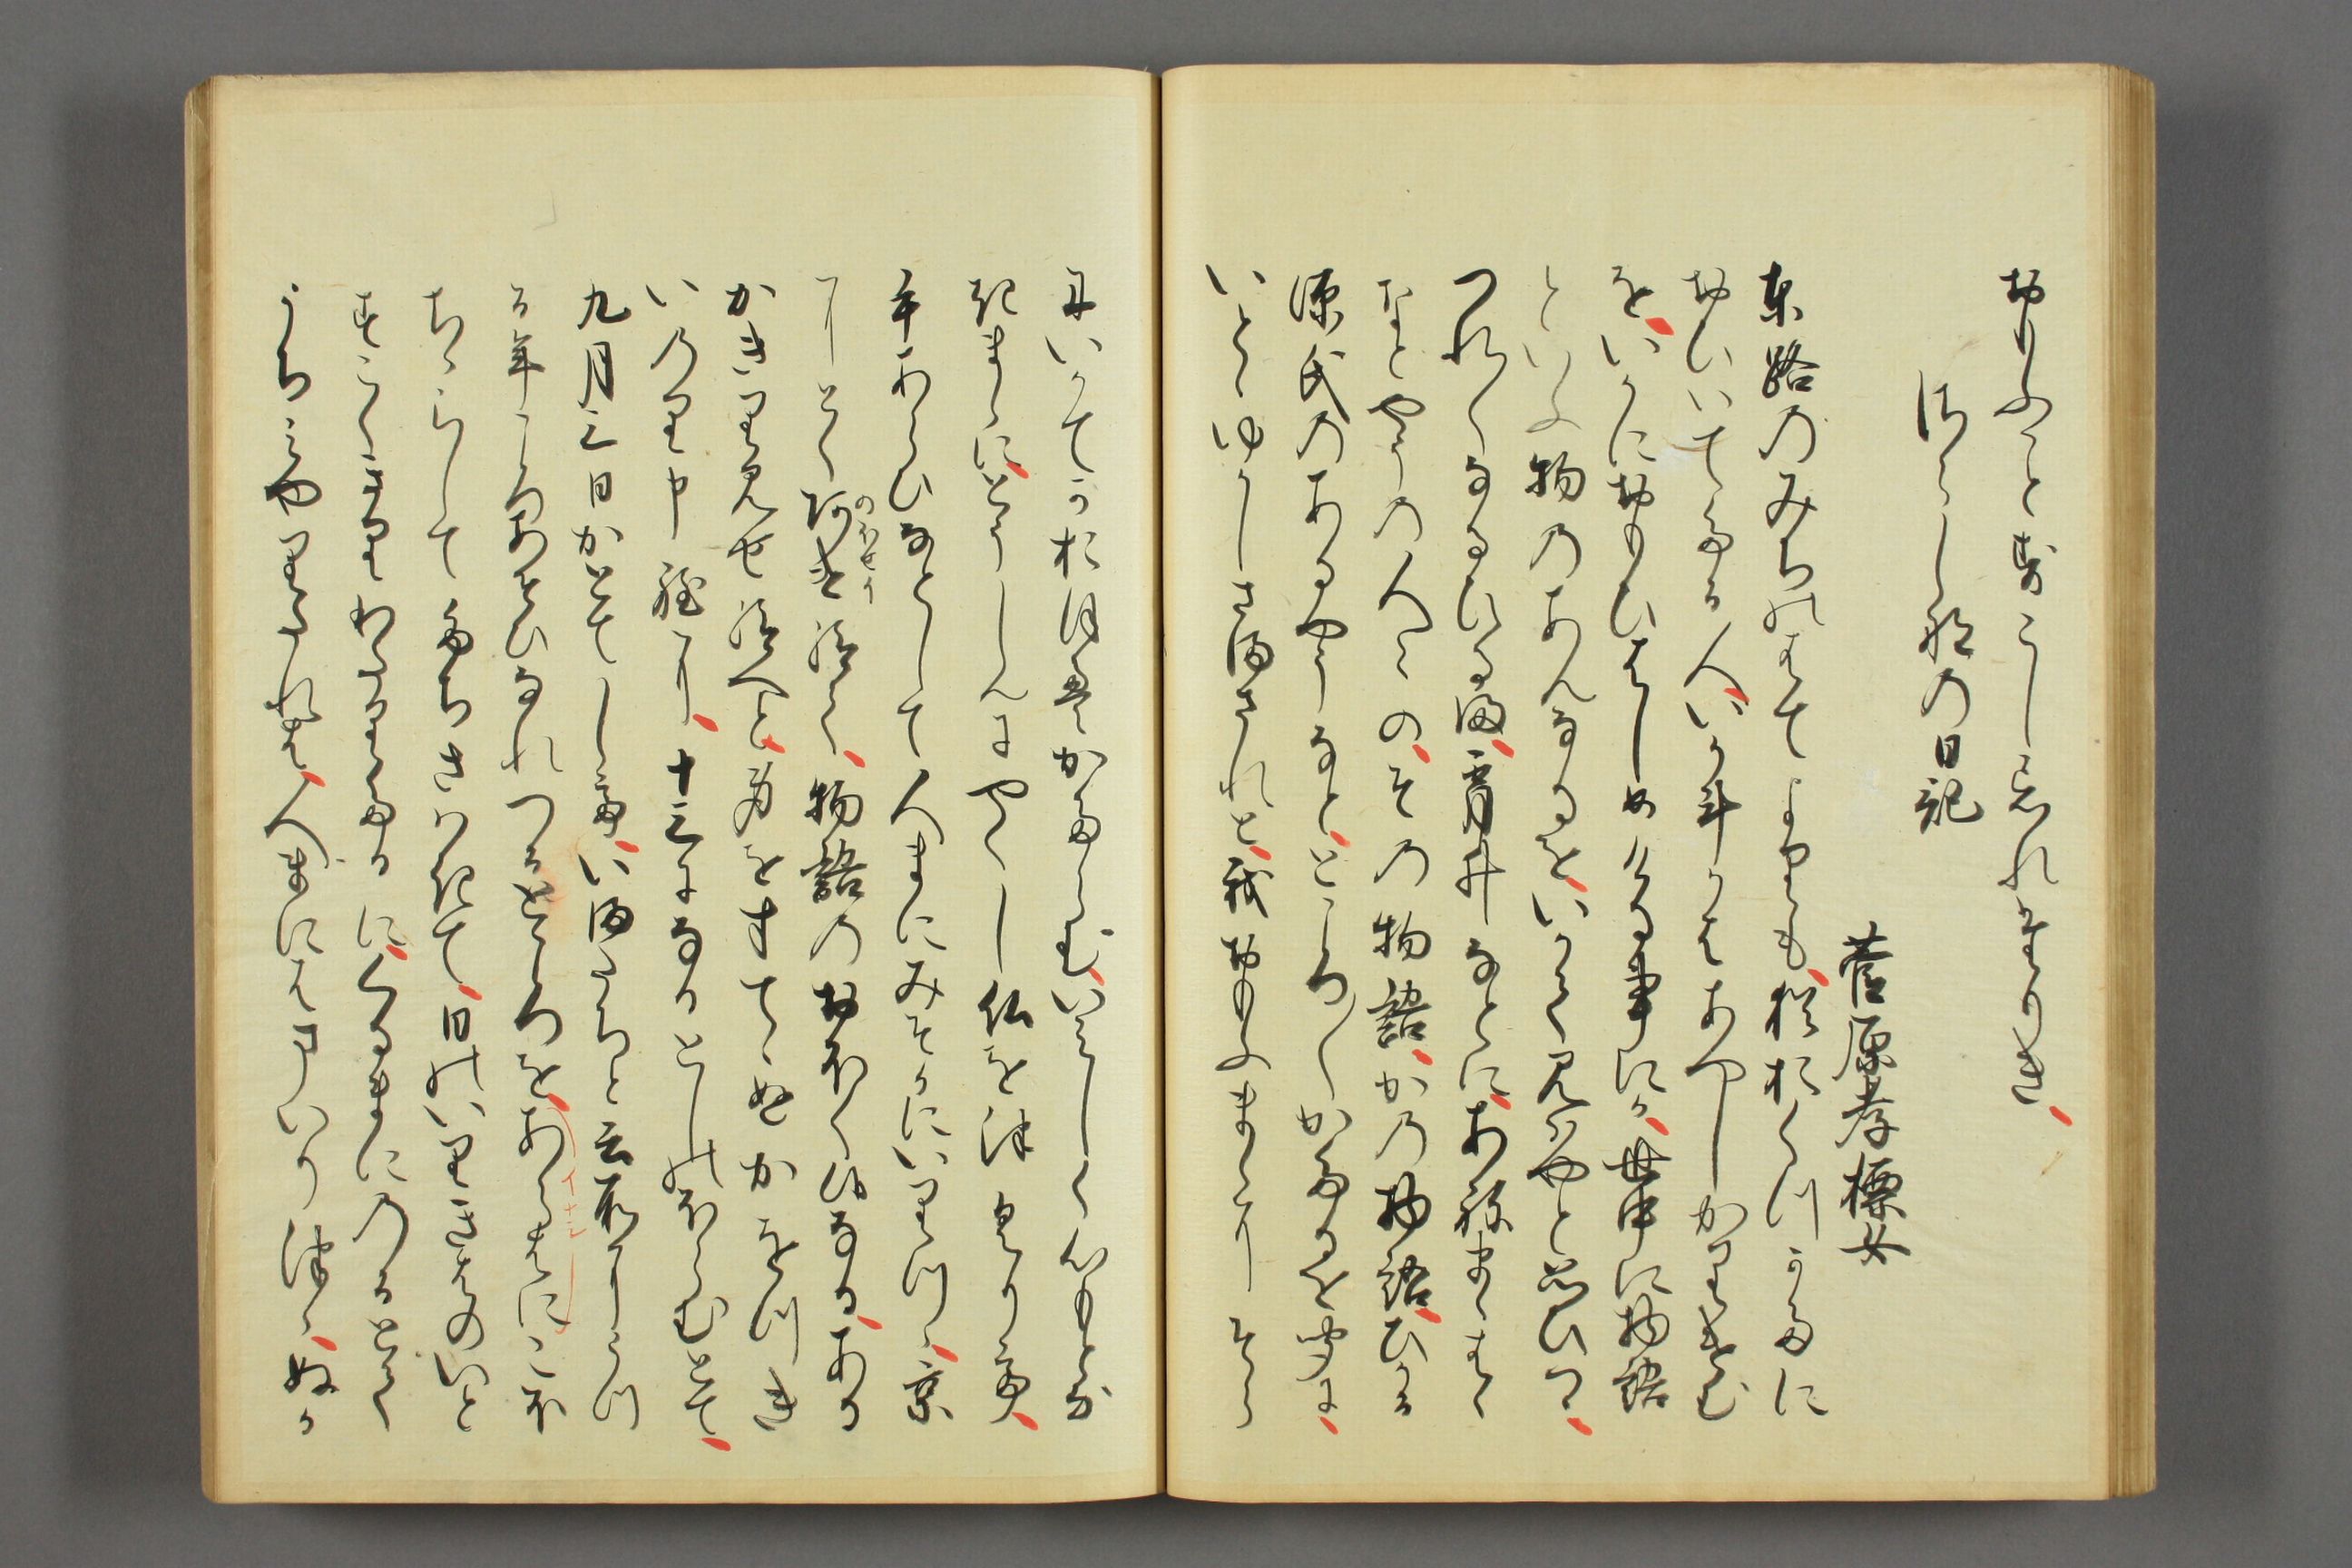 おもふこと書こし忘れさりき
さらしな乃日記
菅原孝標女
東路乃みちのはてよりも猶おくつかたに
おひいてたる人いか斗かはあやしかりけむ
をいかにおもひはしめける事にか世中に物語
といふ物乃あんなるをいかて見はやと思ひつゝ
つれ〱なるひるま宵井なとにあねまゝはゝ
なとやう乃人々のその物語か乃物語ひかる
源氏乃あるやうなとところ〱かたるを聞に
いとゝゆかしさまされと我おもふまゝにそら
にいかてかおほえかたらむいみしく心もとな
きまゝにとうしんにやくし仏を津くりて
手あらひなとして人まにみそかにいりつゝ京
にとくのほせ給て物語のおほく候なるある
かきり見せ給へと身をすてゝぬかをつき
いのり申程に十三になるとしのほらむとて
九月三日かとてしていまたちと云所にうつ
る年ころあそひなれつるところをあらはにこほ
ちちらしてたちさはきて日のいりきはのいと
すこくきりわたりたるに くるまにのるとて
うちみやりたれは人まにはまいりつゝぬか